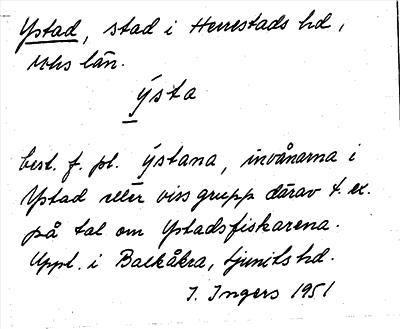 Ystad, stad i Herrestads hd,
Mhs län.
ÿsta
best. f. pl. ÿstana, invånarna i
Ystad eller viss grupp därav t. ex.
på tal om Ystadsfiskarena.
Uppt. i Balkåkra, Ljunits hd.
I. Ingers 1951